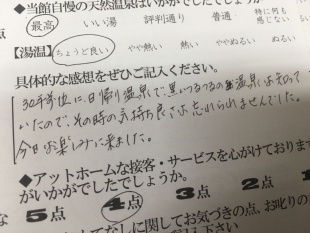 ◆当館自慢の天然温泉はいかがでしたでしょうか。
最高 いい湯 評判通り 普通 特に何も感じない
【湯温】 ちょうど良い やや熱い 熱い ややぬるい ぬるい
具体的な感想をぜひご記入ください。
30年前位に、日帰り温泉で、黒いつるつるの温泉
いたので、その時の気持ち良さが忘れられませんでした。
今日はお楽しみに来ました。
◆アットホームな接客・サービスを心がけております
がいかがでしたでしょうか。
5点 4点 3点 2点
おもてなしに関してお気づきの点、お叱りの